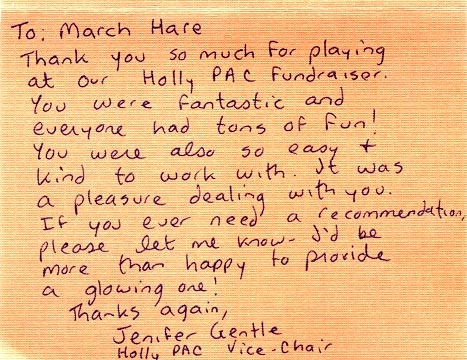 To: March Hare
Thank you so much for playing
at our Holly PAC Fundraiser.
You were fantastic and
everyone had tons of fun!
You were also so easy +
kind to work with. It was
a pleasure dealing with you.
If you ever need a recommendation,
please let me know- I'd be
more than happy to provide
a glowing one!
Thanks again,
Jenifer Gentle
Holly PAC Vice-Chair